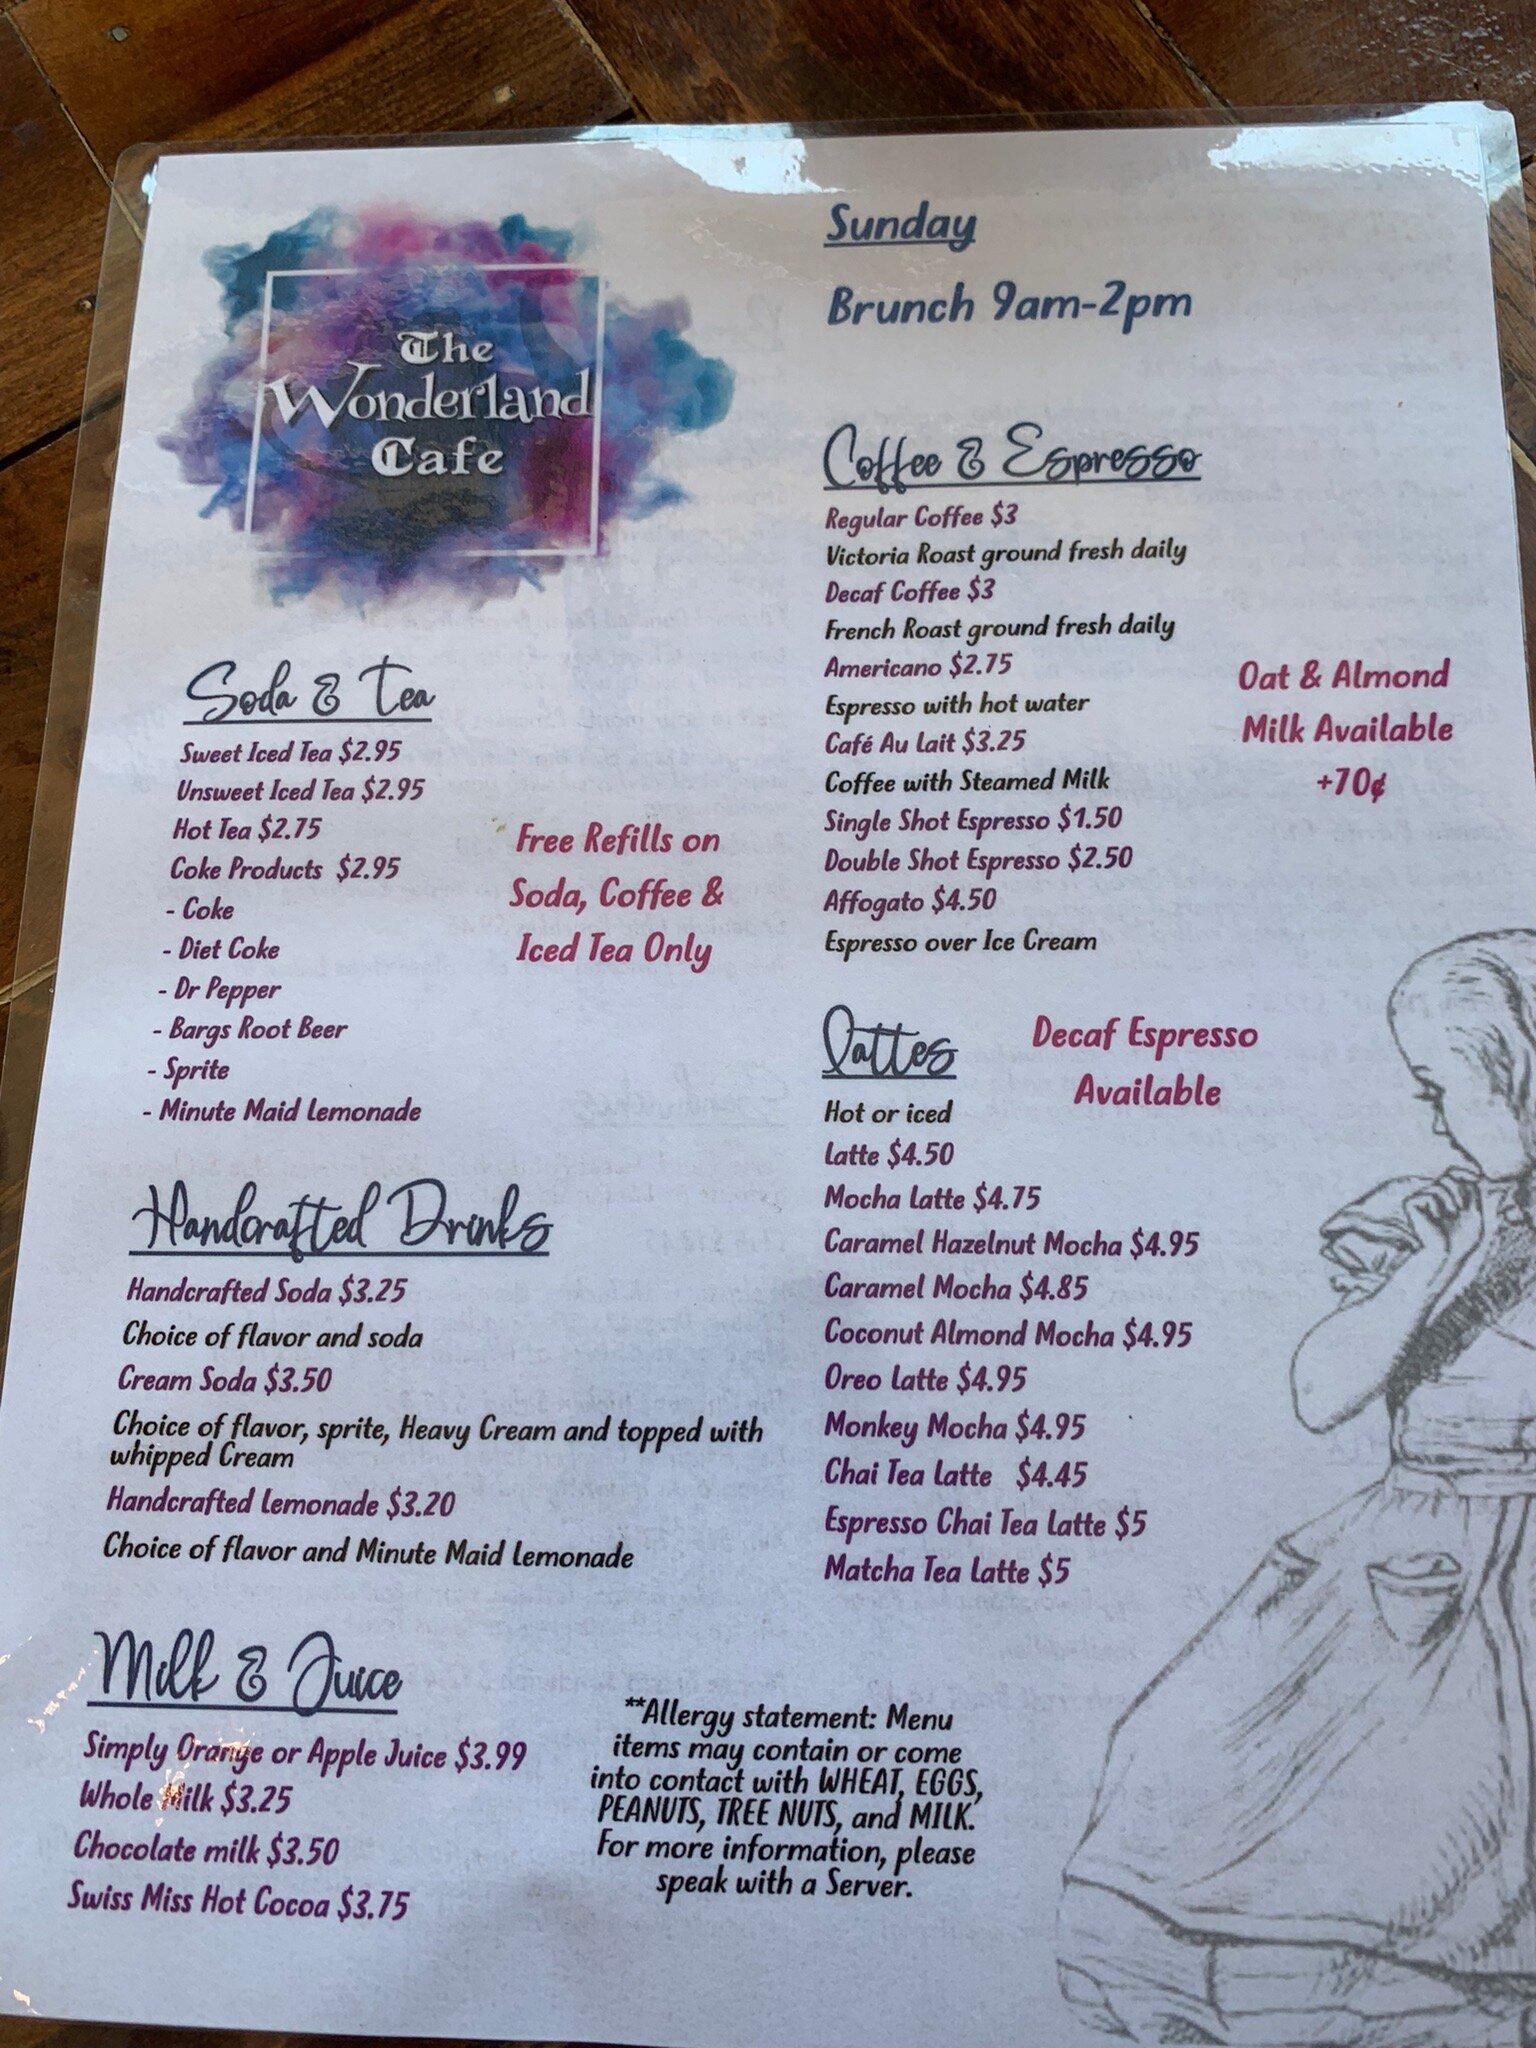 The
Wonderland
Cafe
Sunday
Brunch 9am-2pm
Soda & Tea
Sweet Iced Tea $2.95
Unsweet Iced Tea $2.95
Hot Tea $2.75
Coke Products $2.95
- Coke
- Diet Coke
- Dr Pepper
- Bargs Root Beer
- Sprite
- Minute Maid Lemonade
Free Refills on
Soda, Coffee &
Iced Tea Only
Handcrafted Drinks
Handcrafted Soda $3.25
Choice of flavor and soda
Cream Soda $3.50
Choice of flavor, sprite, Heavy Cream and topped with
whipped Cream
Handcrafted Lemonade $3.20
Choice of flavor and Minute Maid Lemonade
Milk & Juice
Simply Orange or Apple Juice $3.99
Whole Milk $3.25
Chocolate milk $3.50
Swiss Miss Hot Cocoa $3.75
Coffee & Espresso
Regular Coffee $3
Victoria Roast ground fresh daily
Decaf Coffee $3
French Roast ground fresh daily
Americano $2.75
Espresso with hot water
Café Au Lait $3.25
Coffee with Steamed Milk
Single Shot Espresso $1.50
Double Shot Espresso $2.50
Affogato $4.50
Espresso over Ice Cream
Oat & Almond
Milk Available
+70¢
Lattes
Decaf Espresso
Available
Hot or iced
Latte $4.50
Mocha Latte $4.75
Caramel Hazelnut Mocha $4.95
Caramel Mocha $4.85
Coconut Almond Mocha $4.95
Oreo Latte $4.95
Monkey Mocha $4.95
Chai Tea Latte $4.45
Espresso Chai Tea Latte $5
Matcha Tea Latte $5
**Allergy statement: Menu
items may contain or come
into contact with WHEAT, EGGS,
PEANUTS, TREE NUTS, and MILK.
For more information, please
speak with a Server.